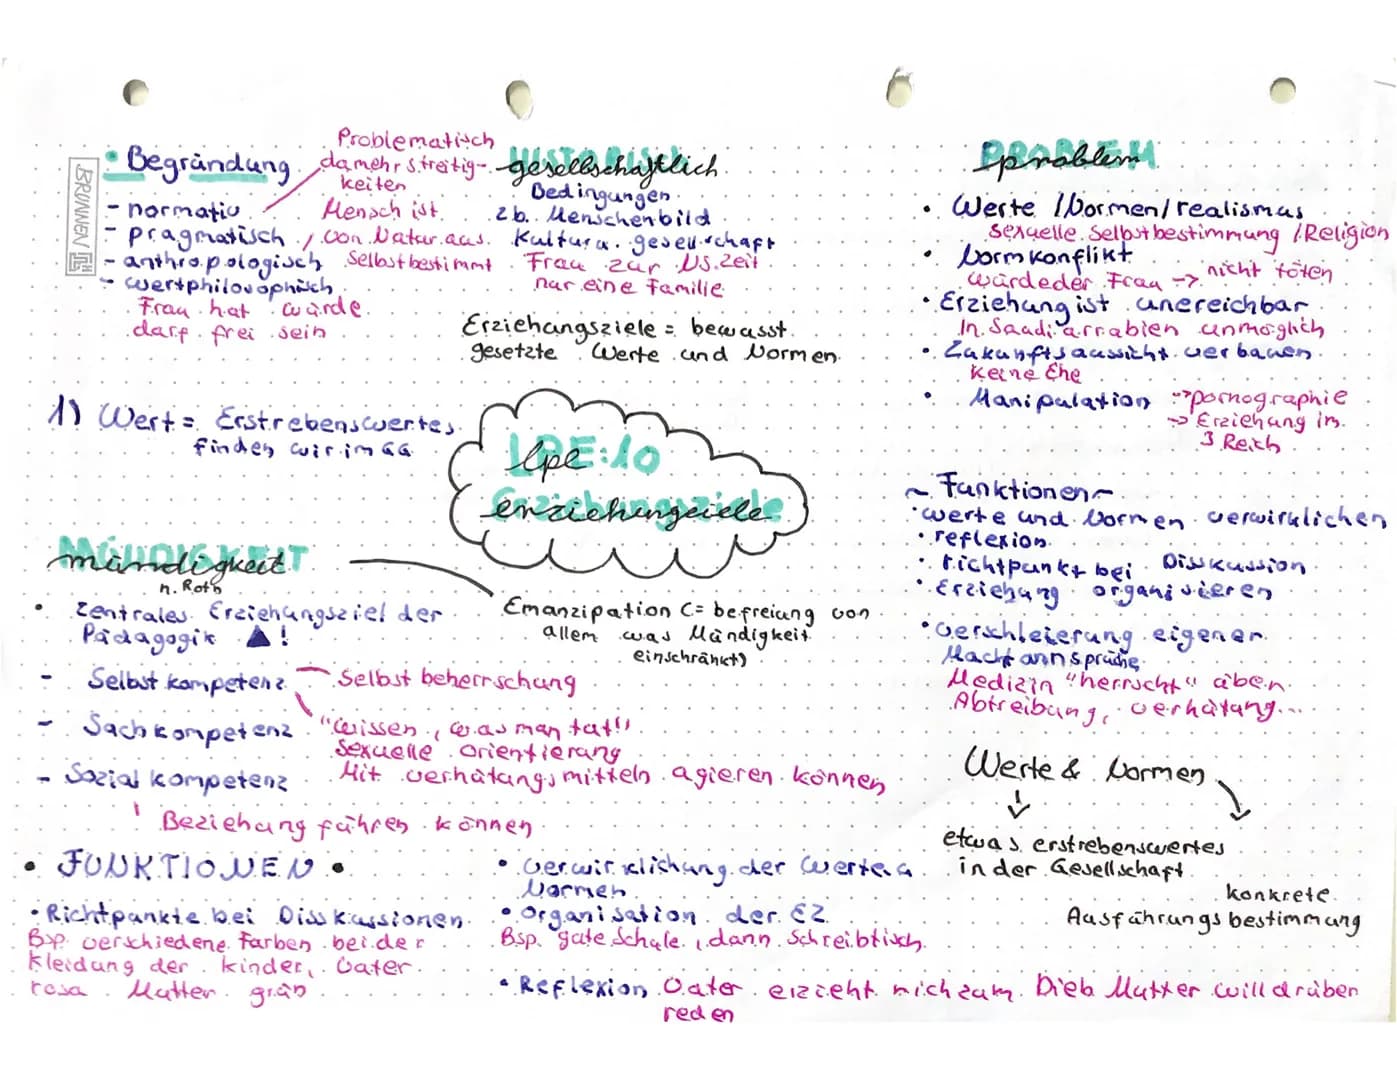 BRUNNEN
• Begründung
- normativ
- pragmatisch
- anthropologisch
- wertphilosophisch
Frau hat würde
darf frei sein
Problematisch
da mehr streitig-
keiten
Mensch ist
von Natur aus
Selbstbestimmt
HISTORISCH
gesellschaftlich
Bedingungen
zb. Menschenbild
Kultur u. gesellschaft
Frau zur NS. Zeit
nur eine Familie
Erziehungsziele = bewusst
gesetzte Werte und Normen
PROBLEM
problem
• Werte / Normen / realismus
sexuelle Selbstbestimmung / Religion
• Normkonflikt
würde der Frau -> nicht töten
• Erziehung ist unereichbar
In Saudi arrabien unmöglich
• Zukunftsaussicht verbauen
Keine Ehe
• Manipulation -> pornographie
-> Erziehung im
3 Reich
1) Wert = Erstrebenswertes
finden wir im GG
LPE:10
lpe
Erziehungsziele
erziehungsziele
~ Funktionen ~
• werte und Normen verwirklichen
• reflexion
• richtpunkt bei Disskussion
• Erziehung organisieren
• verschleierung eigener
Macht annsprüche
Medizin "herrscht" üben
Abtreibung, verhütung...
MÜNDIGKEIT
mündigkeit
n. Roth
• Zentrales Erziehungsziel der
Pädagogik !
- Selbst kompetenz
Selbst beherrschung
- Sach kompetenz
"wissen, was man tut"
sexuelle orientierung
- Sozial kompetenz
Mit verhütungsmitteln agieren können
Beziehung führen können
Emanzipation (= befreiung von
allem was Mündigkeit
einschränkt)
Werte & Normen
etwas erstrebenswertes
in der Gesellschaft
konkrete
Ausführungsbestimmung
• FUNKTIONEN •
• Richtpunkte bei Disskussionen
Bsp. verschiedene Farben bei der
Kleidung der kinder, Vater
rosa Mutter grün
• verwirklichung der Werte u.
Normen
• Organisation der EZ
Bsp. gute Schule, dann Schreibtisch
• Reflexion Vater erzieht mich zum Dieb Mutter will drüber
reden